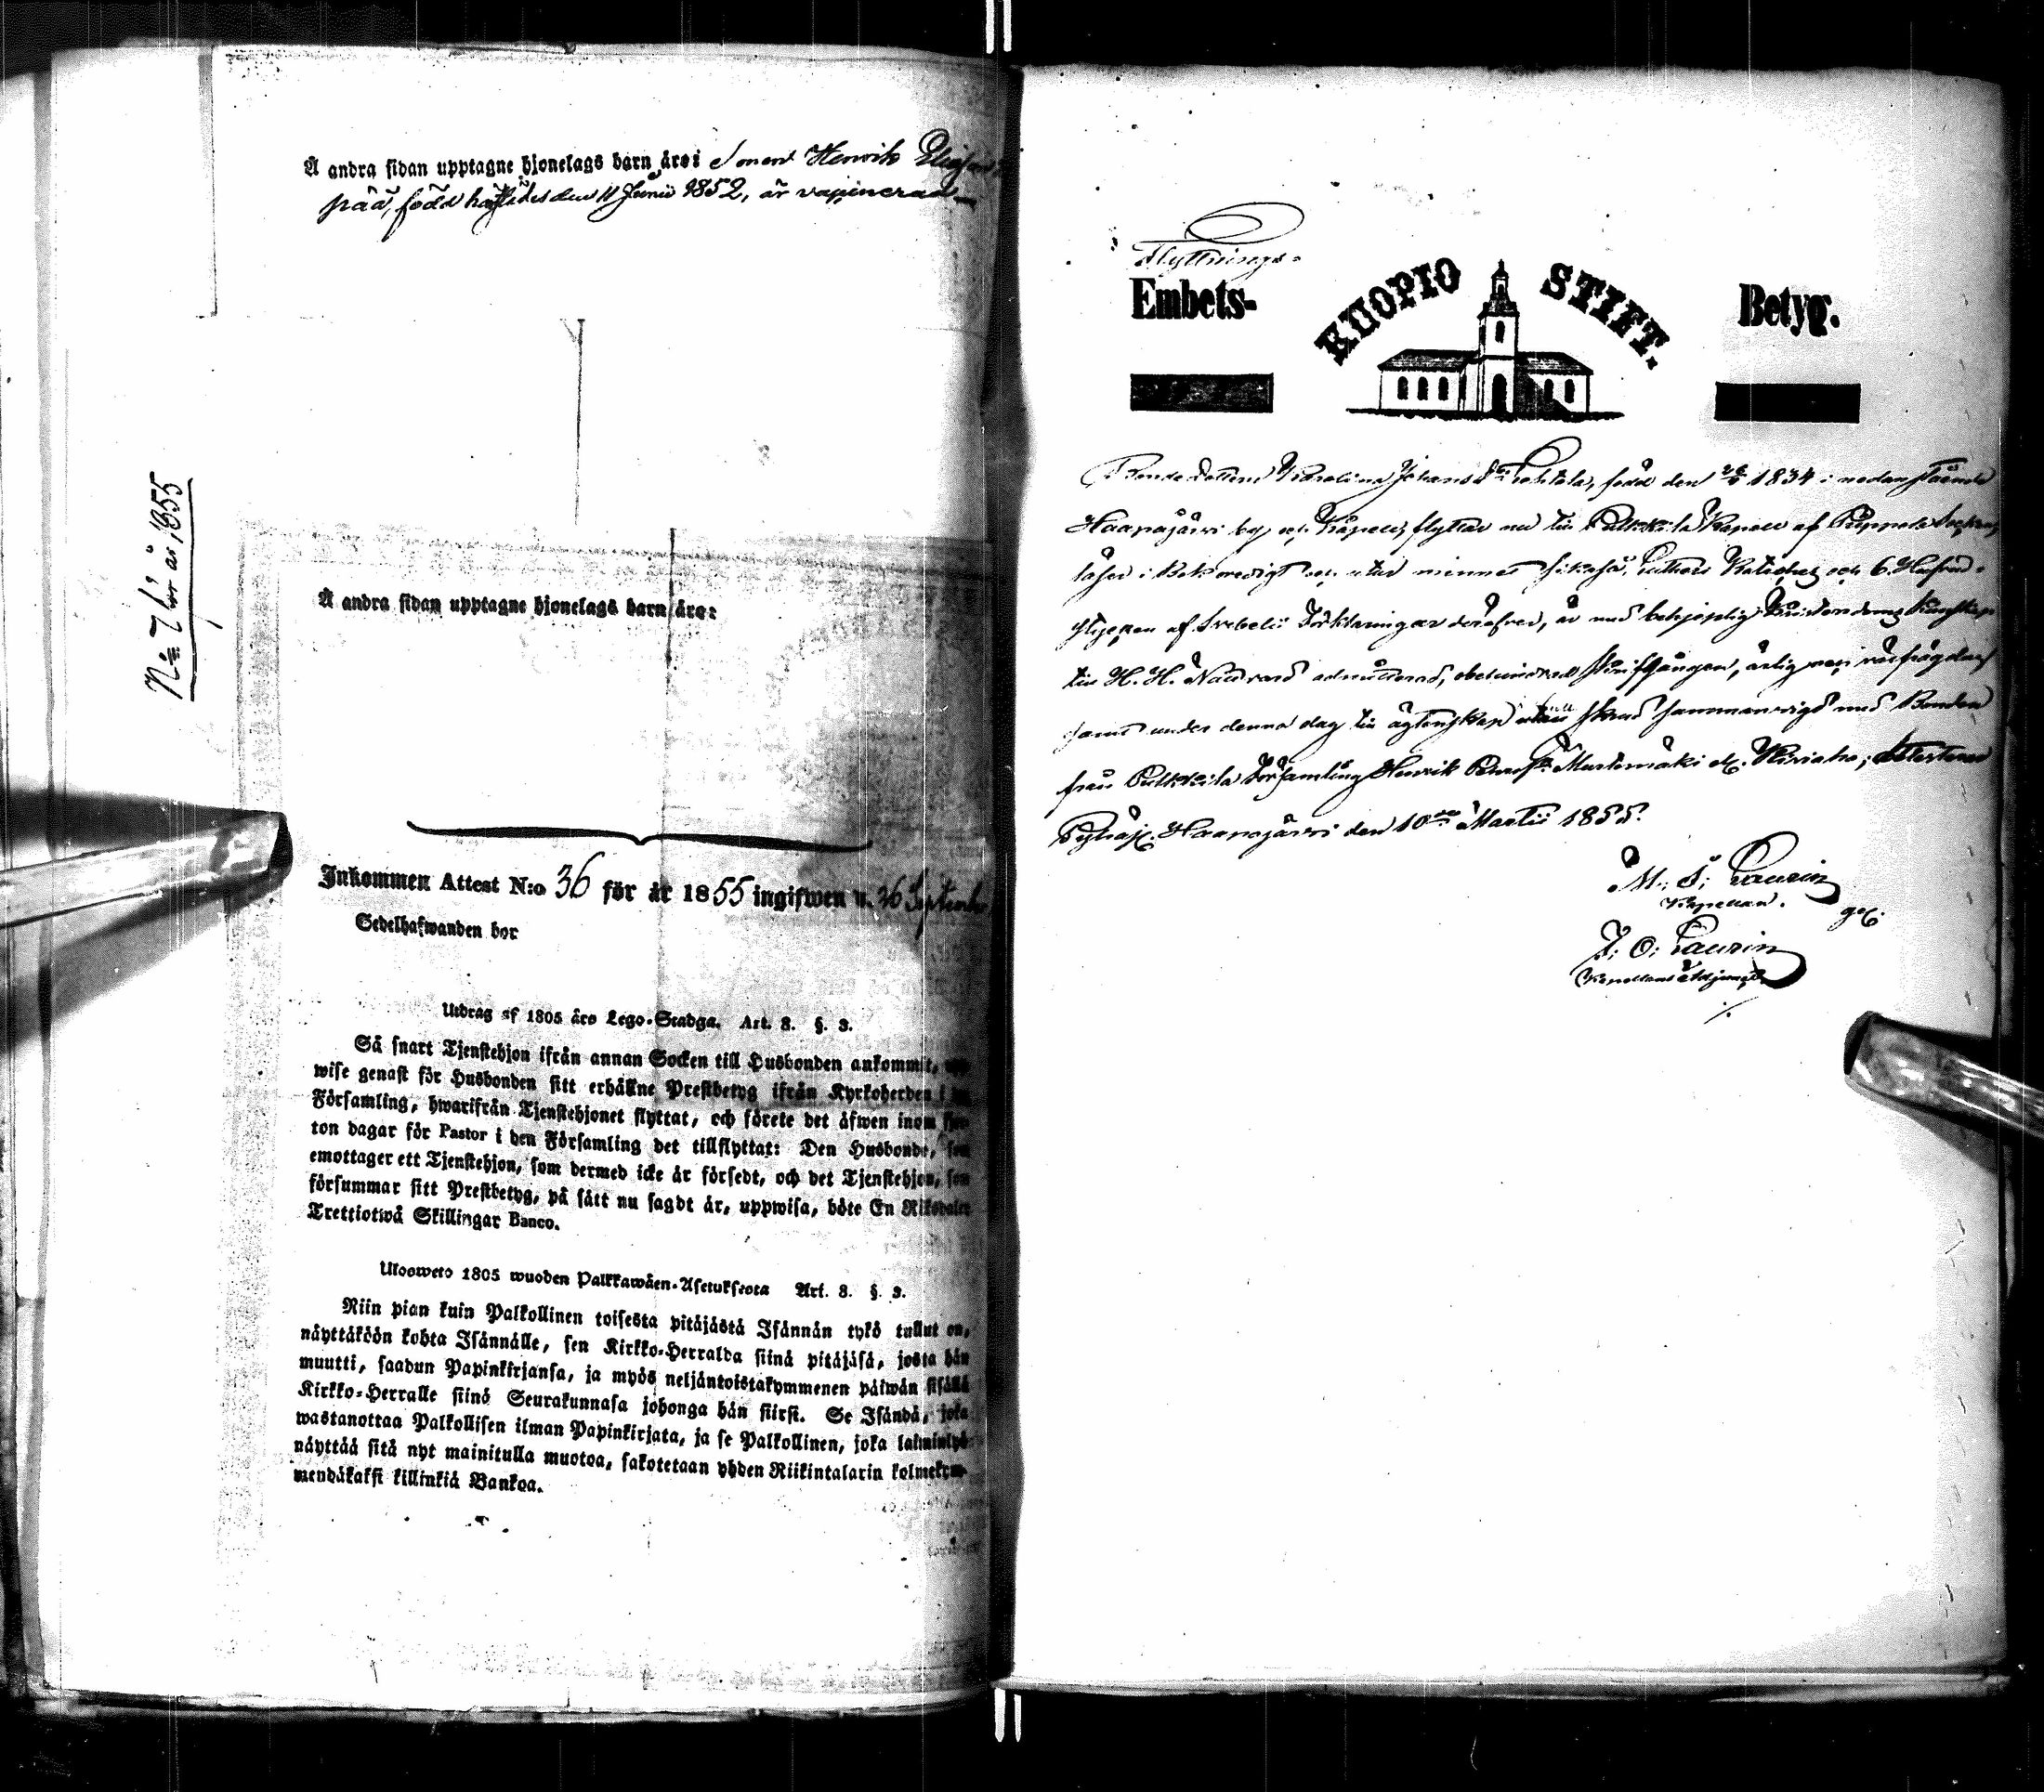 Å andra sidan upptagne hjonelags barn äro: Sonen Henrik
pää, född härstädes den 11 Junii 1852, är vaccinerad
N:o 7 för år 1855
Å andra sidan upptagne hjonelags barn äro:
Inkommen Attest N:o 36 för år 1855 ingifwen d. 26 September
Sedelhafwanden bor
Utdrag af 1805 års Lego-Stadga. Art. 8. §. 3.
Så snart Tjenstehjon ifrån annan Socken till Husbonden ankommit,
wise genast för Husbonden sitt erhållne Prestbetyg ifrån Kyrkoherden i
Församling, hwarifrån Tjenstehjonet flyttat, och förete det äfwen inom
ton dagar för Pastor i den Församling det tillflyttat: Den Husbonde, som
emottager ett Tjenstehjon, som dermed icke är försedt, och det Tjenstehjon, som
försummar sitt Prestbetyg, på sätt nu sagdt är, uppwisa, böte En Riksdaler
Trettiotwå Skillingar Banco.
Ulosweto 1805 wuoden Palkkawäen-Asetuksesta Art. 8. §. 3.
Niin pian kuin Palkollinen toisesta pitäjästä Isännän tykö tullut on,
näyttäköön kohta Isännälle, sen Kirkko-Herralda siinä pitäjäsä, josta hän
muutti, saadun Papinkirjansa, ja myös neljäntoistakymmenen päiwän sisällä
Kirkko-Herralle siinö Seurakunnasa johonga hän siirsi. Se Isändä, joka
wastanottaa Palkollisen ilman Papinkirjata, ja se Palkollinen, joka laiminlyö
näyttää sitä nyt mainitulla muotoa, sakotetaan yhden Riikintalarin kolmekym-
mendäkaksi killinkiä Bankoa.
Flyttnings-
Embets-
KUOPIO STIFT.
Betyg.
Bonde dottern Karolina Johans dr född den 1834 i nedanstående
Haapajärvi by och Kapell, flyttar nu till Pulkkila Kapell af Pippola Socken,
läser i Bok och utur minnet Lutheri Kateches och 6 Hufvud-
stycken af Svebelii Förklaringar deröfver, är med behjerplig Kristendoms kunskap
till H. H. Nattvard admitterad, obehindrad
samt under denna dag till ägtenskap sammanvigd med Bonden
från Pulkkila Församling Henrik Mustomäki attesterar
Haapajärvi den 10 Martii 1855.
M. S. Laurin
Kapellan.
J. O. Laurin
Kapellans Adjunct